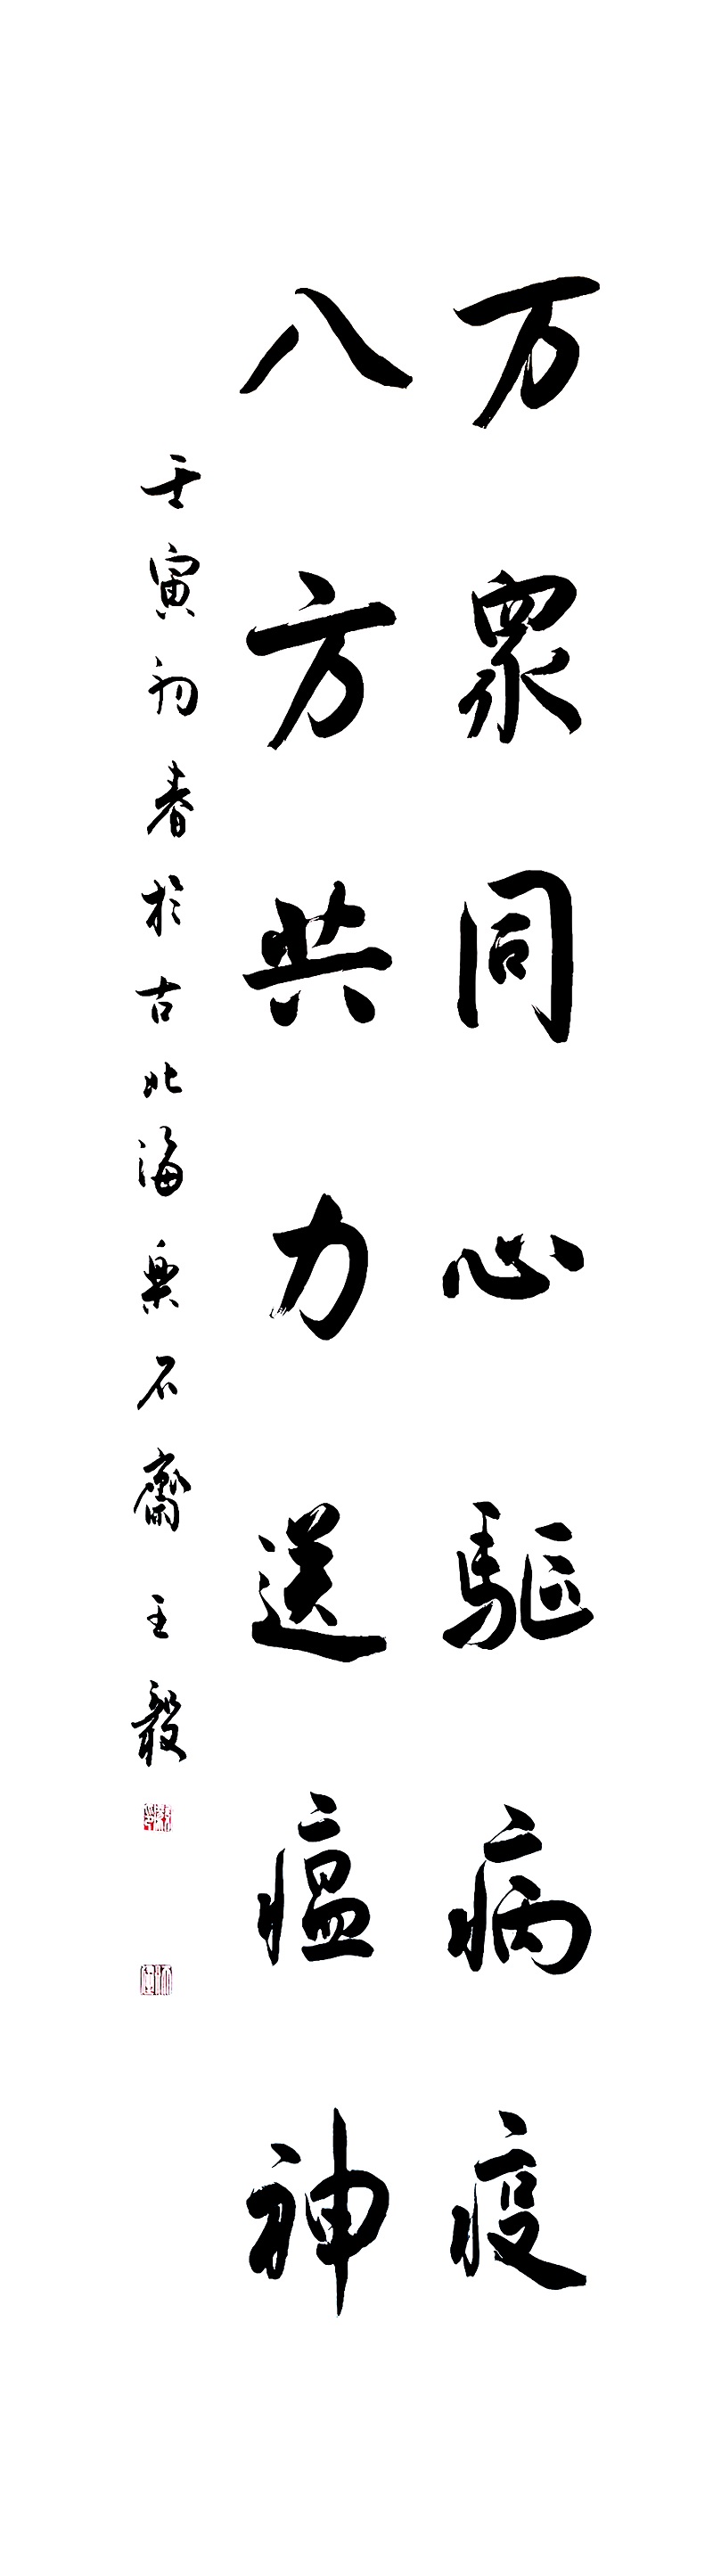 万眾同心驅病疫
八方共力送瘟神
壬寅初春於古北海樂石齋 王毅